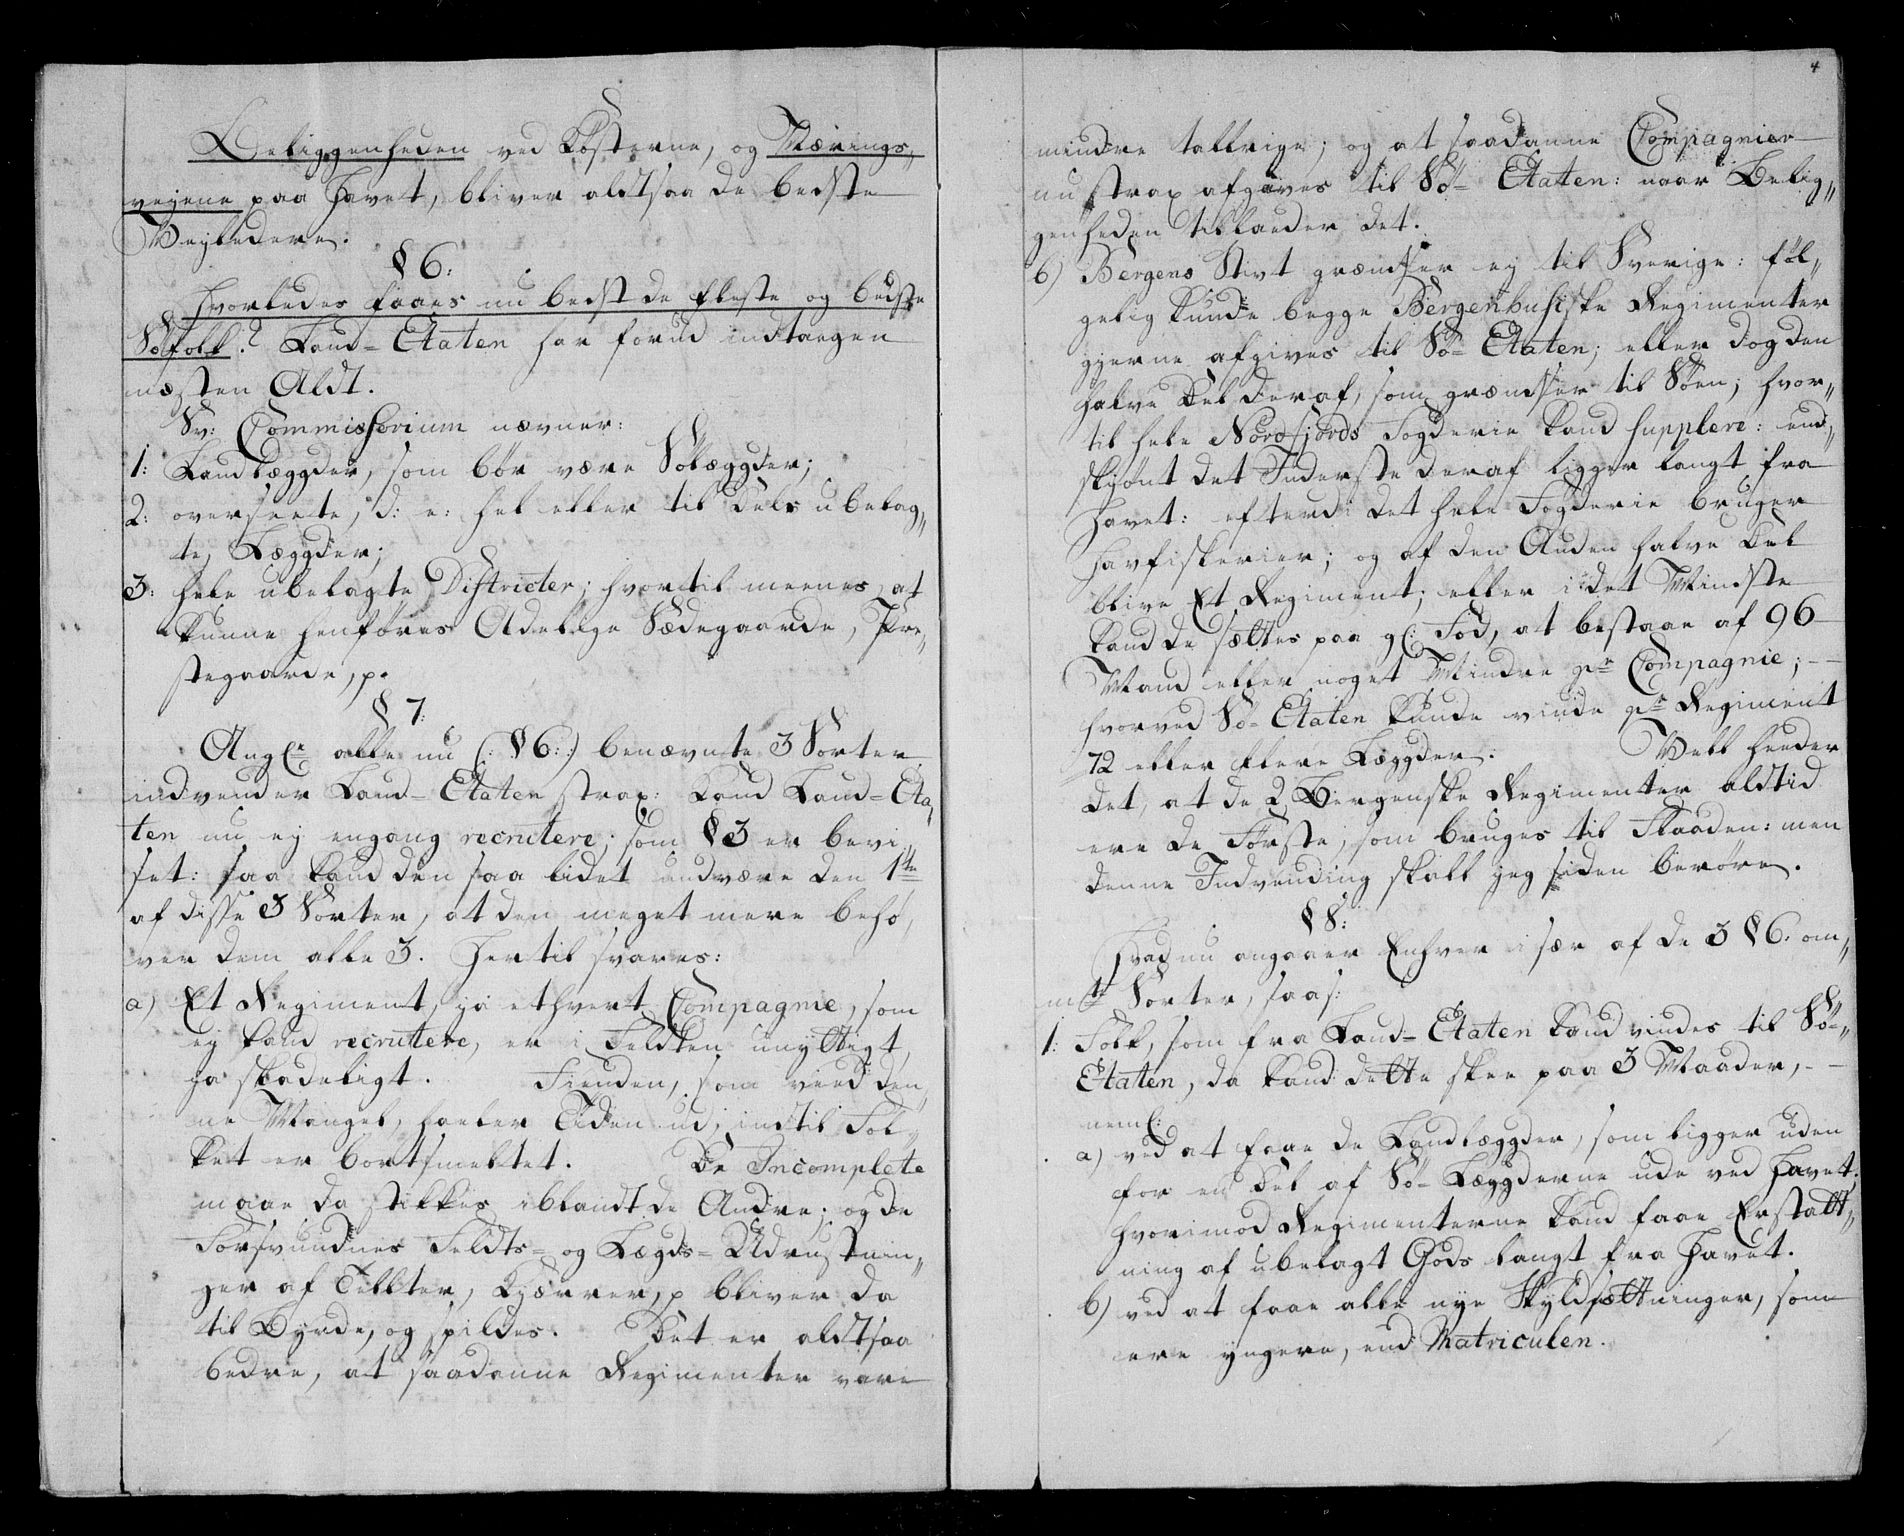 Beliggenheden ved Kysterne, og Nærings,,
vejene paa Havet, bliver altsaa de bedste
Vejledere.
§ 6:
Hvorledes faaes nu bedst de fleste og bedste
Søfolk? Land-Etaten har forud indtagen
næsten Aldt.
Sv: Commissorium nævner:
1: Landlægder, som bør være Sölægder;
2: overseete, d: e: hel eller til Dels ubelag,,
te, Læggder;
3: hele ubelagte Districter; hvortil meenes, at
kunne henføres Adelige Sædegaarde, Præ,,
stegaarde, p.
§ 7:
Ang<sup>e</sup> alle nu (: §6: :) benævnte 3 Sorter
indvender Land-Etaten strax: Kand Land-Eta,,
ten nu ej engang recrutere; som § 3 er bevi,,
set: saa kand den saa lidet undvære den 1ste
af disse 3 Sorter, at den meget mere behø,,
ver dem alle 3. Hertil svares:
a) Et Regiment, ja ethvert Compagnie, som
ej kand recrutere, er i Feldten unyttigt,
ja skadeligt. Fienden, som veed den,,
ne Mangel, haler Tiden ud, indtil Fol,,
ket er bortsmeltet. De Incomplete
maae da stikkes iblandt de Andre; og de
Forsvundnes Feldts- og Lægds-Udrustnin,,
ger af Tellter, Kjærrer, p bliver da
til Byrde, og spildes. Det er aldtsaa
bedre, at saadanne Regimenter vare
4
mindre talrige; og at saadanne Compagnier
nu strax afgaves til Sö-Etaten: naar Belig,,
genheden tillader det.
b) Bergens Stivt grændser ej til Sverige: föl,,
gelig kunde begge Bergenhusiske Regimenter
gjerne afgives til Sö-Etaten; eller dog den
halve Del deraf, som grændser til Söen; hvor,,
til hele Nordfjords Fogderie kand supplere: end,,
skjönt det Inderste deraf ligger langt fra
Havet: efterdi det hele Fogderie bruger
Havfiskerier; og af den Anden halve Del
blive Et Regiment; eller i det Mindste
kand de sættes paa gl: Fod, at bestaae af 96
Mand eller noget Mindre pr Compagnie;
hvorved Sö-Etaten kunde vinde pr Regiment
72 eller flere Læggder. Vell heeder
det, at de 2 Bergenske Regimenter aldtid
ere de Förste, som bruges til Flaaden: men
denne Indvending skall jeg siden beröre.
§ 8:
Hvad nu angaaer Enhver i sær af de 3 §6: om,,
mte Sorter, saas:
1: Folk, som fra Land-Etaten kand vindes til Sö-,,
Etaten, da kand dette skee paa 3 Maader,
neml:
a) ved at faae de Landlæggder, som ligger uden
for en Del af Sö-Læggderne ude ved Havet;
hvorimod Regimenterne kand faae Erstatt,,
ning af ubelagt Gods langt fra Havet.
b) ved at faae alle nye Skyldsættninger, som
ere yngere, end Matriculen.